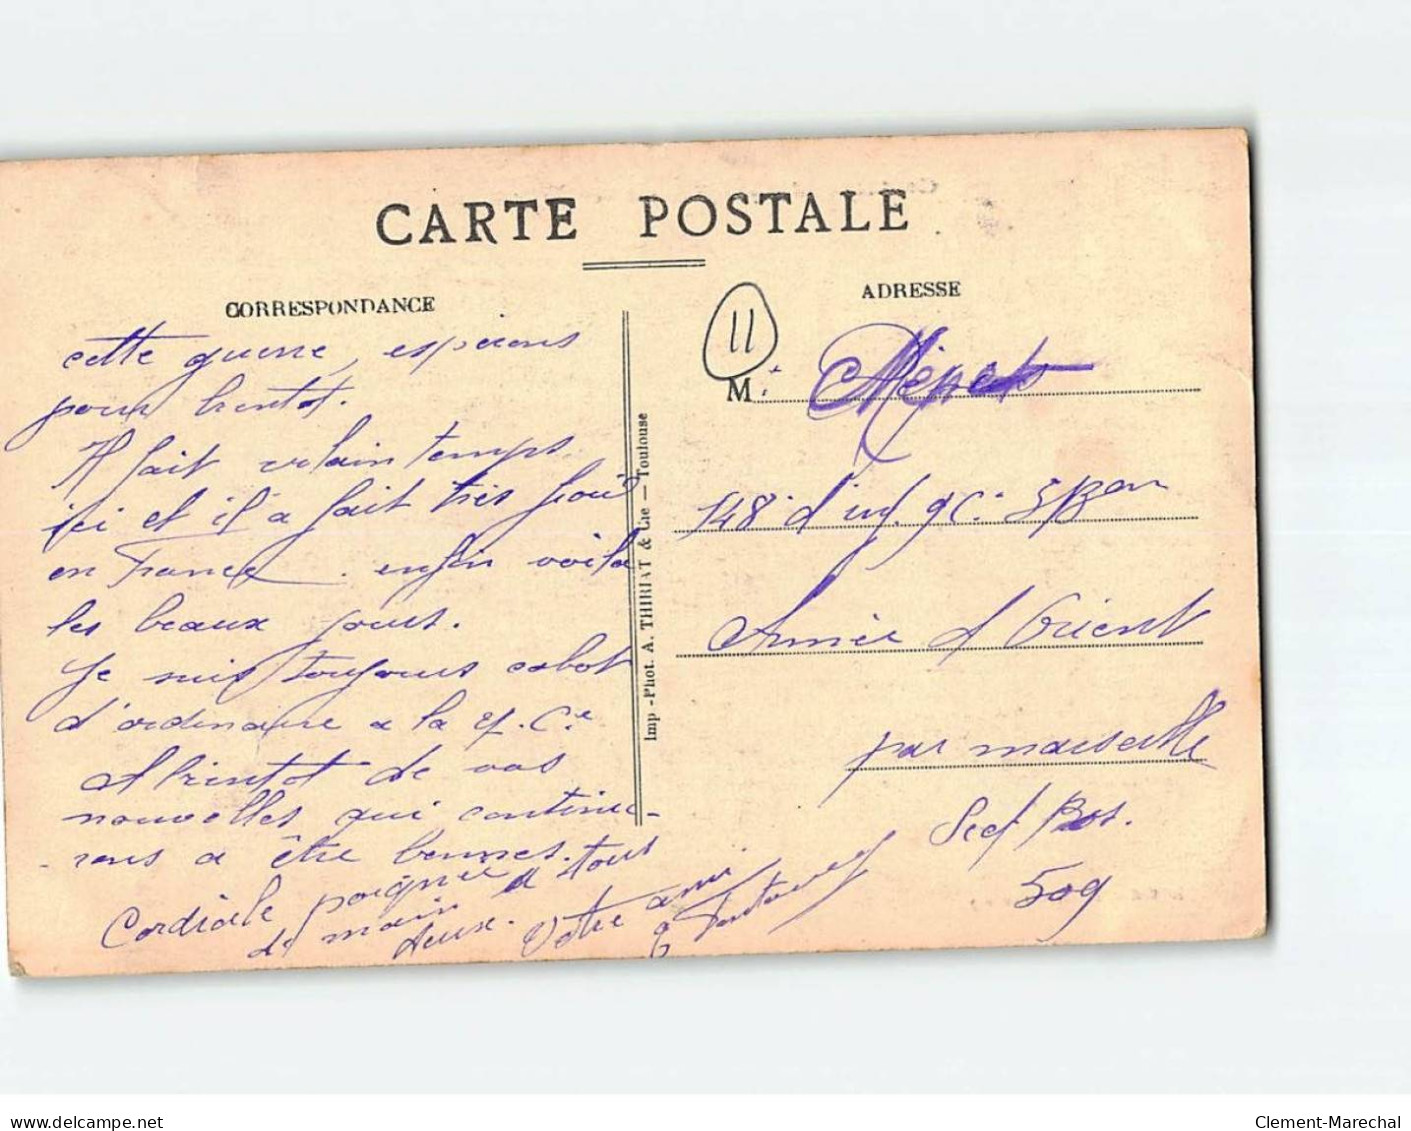 CARTE POSTALE
CORRESPONDANCE
cette guerre, espérons
pour bientot.
Il fait vilain temps
ici et il a fait très froid
en France. enfin voila
les beaux jours.
Je suis toujours cabot
d'ordinaire a la 4. Cie
A bientot de vos
nouvelles qui continu-
-rons a être bonnes.
Cordiale poignée
de main a tous
deux. Votre ami
Imp-Phot. A. THIRIAT & Cie — Toulouse
11
ADRESSE
M.
148e d'inf. 9 C. 3 Bon
Armée d'Orient
par marseille
Sect Post.
509
Clement-Marechal
www.delcampe.net